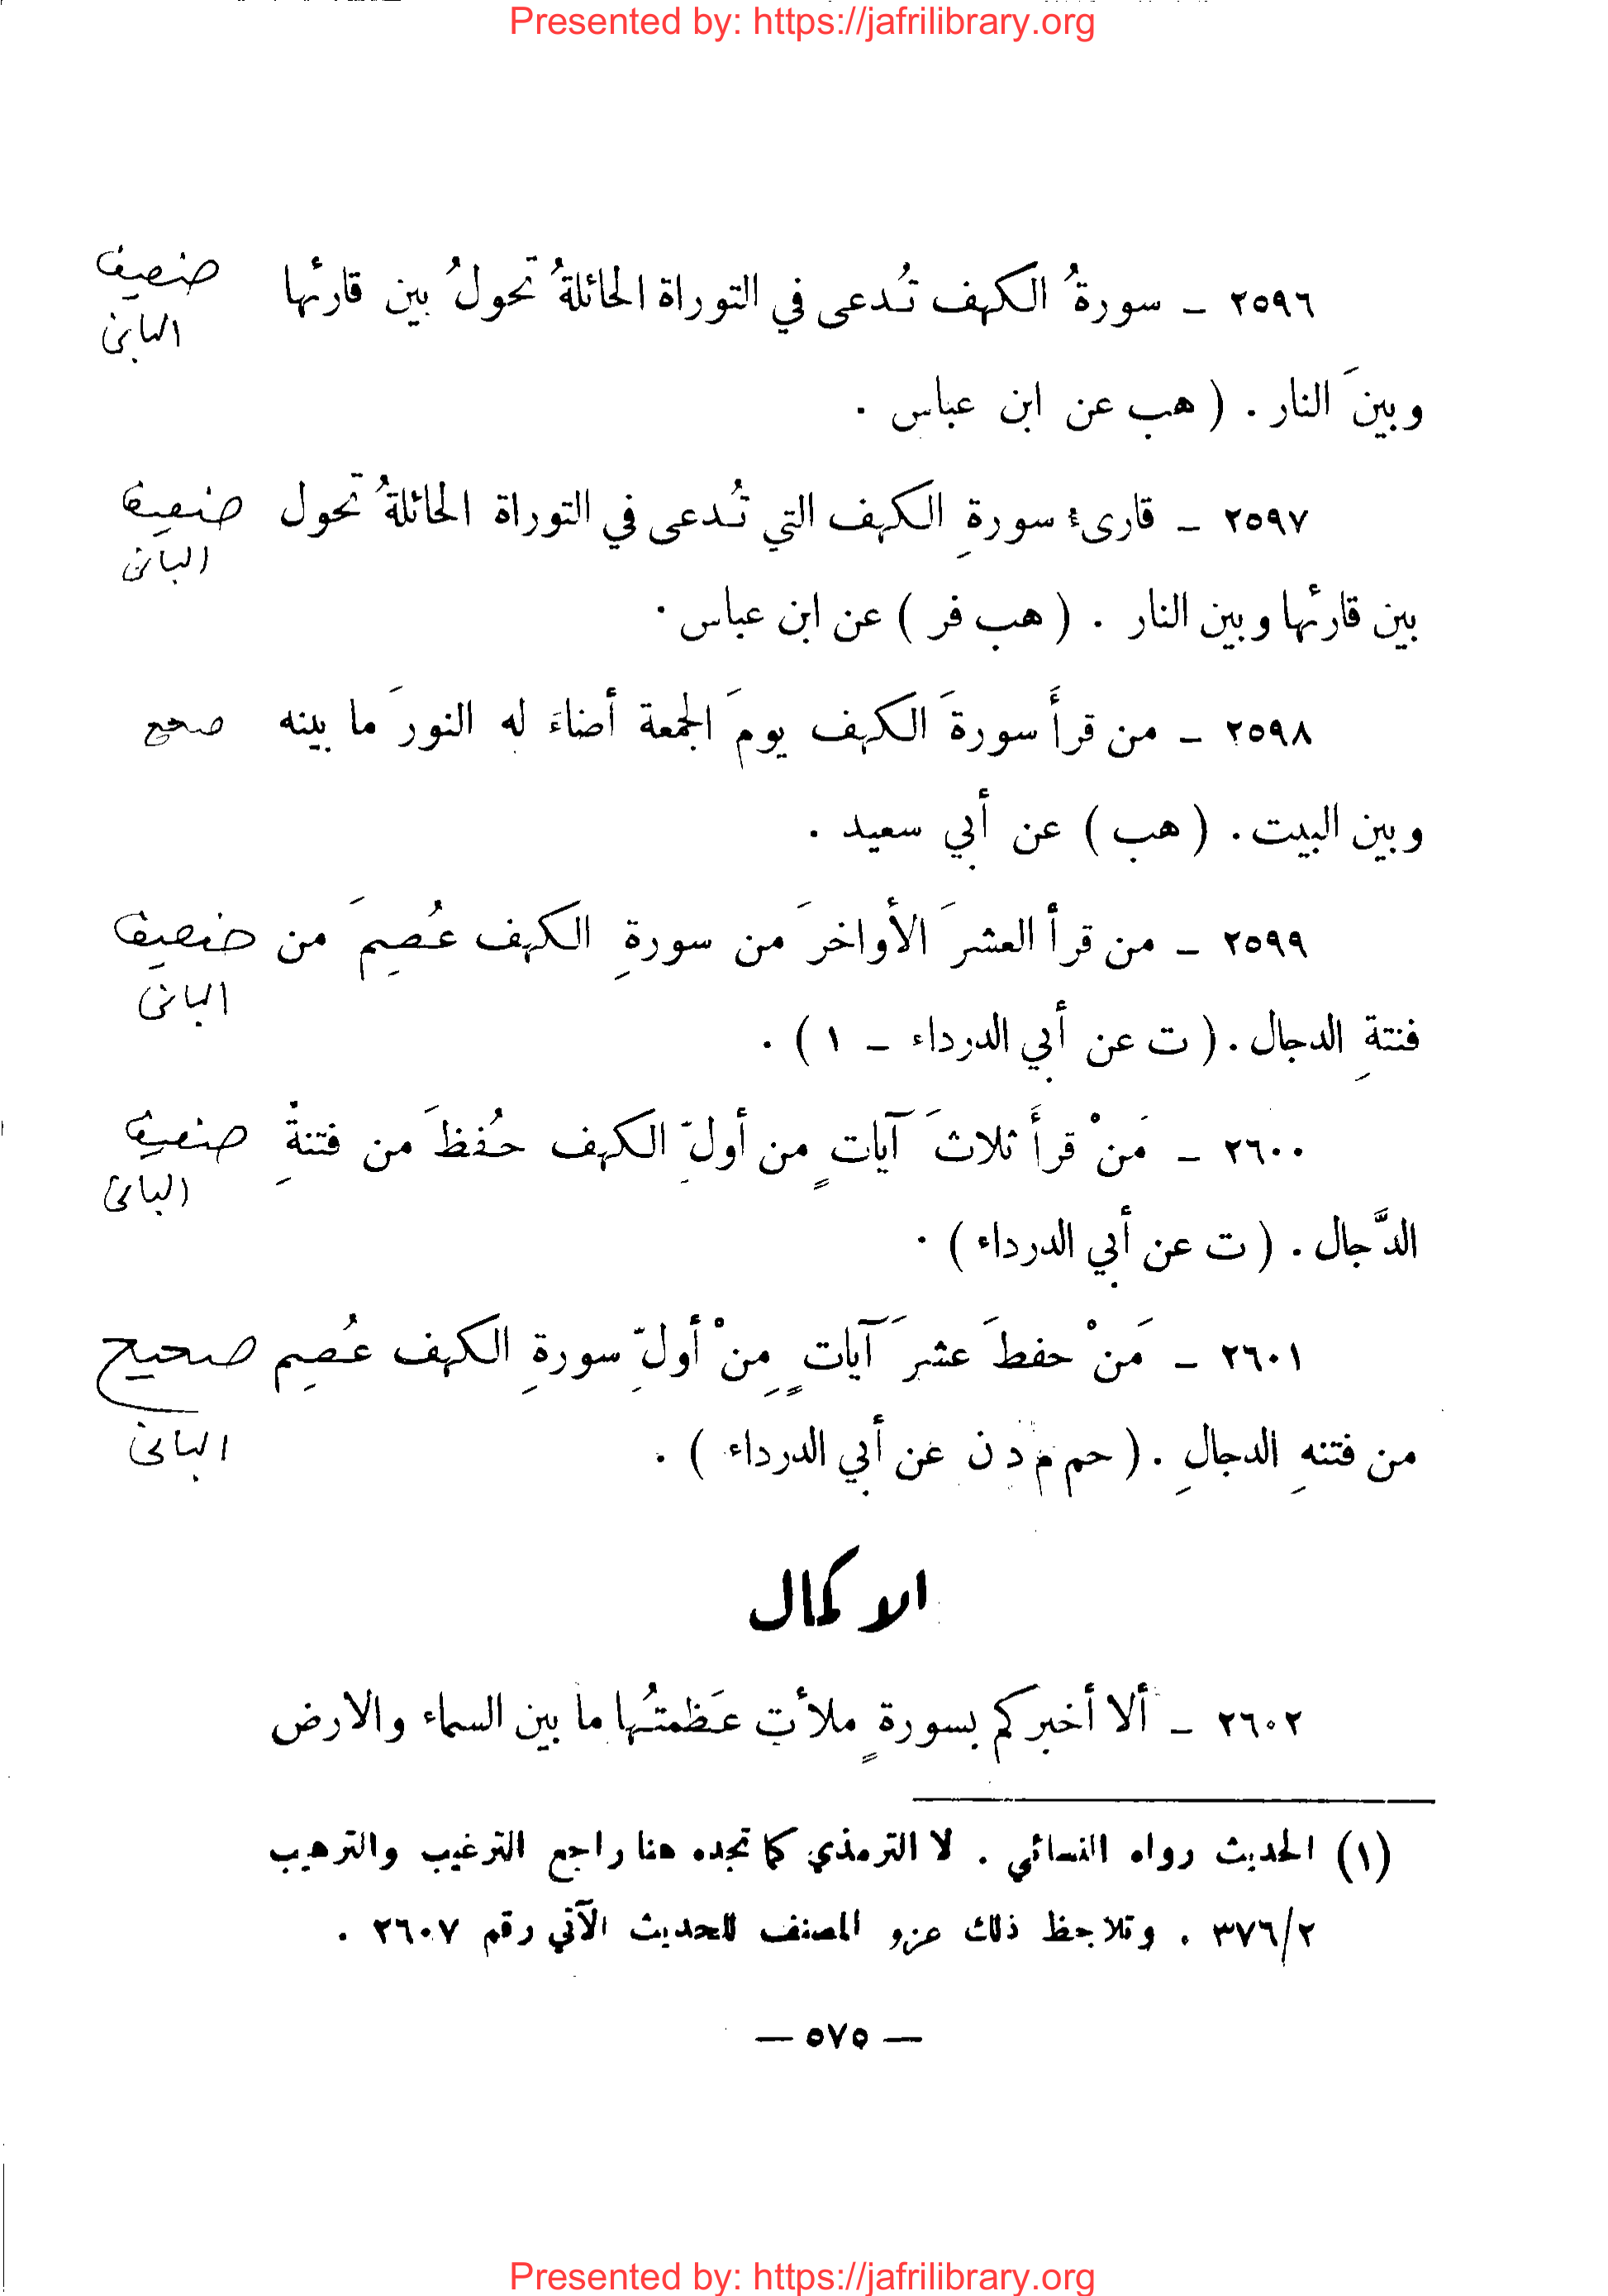 Presented by: https://jafrilibrary.org
٢٥٩٦ ـ سورةُ الكهف تُدعى في التوراة الحائلةُ تحولُ بين قارئها ضعيف
البانى
وبينَ النار . ( هب عن ابن عباس .
٢٥٩٧ ـ قارىء سورةِ الكهف التي تُدعى في التوراة الحائلةُ تحول ضعيف
البانى
بين قارئها وبين النار . ( هب فر ) عن ابن عباس .
٢٥٩٨ ـ من قرأَ سورةَ الكهف يومَ الجمعة أضاءَ له النورَ ما بينه صحيح
وبين البيت . ( هب ) عن أبي سعيد .
٢٥٩٩ ـ من قرأ العشرَ الأواخرَ من سورةِ الكهف عُصِمَ من ضعيف
البانى
فتنةِ الدجال . ( ت عن أبي الدرداء ـ ١ ) .
٢٦٠٠ ـ مَنْ قرأَ ثلاثَ آياتٍ من أولِّ الكهف حُفظَ من فتنةِ ضعيف
البانى
الدَّجال . ( ت عن أبي الدرداء ) .
٢٦٠١ ـ مَنْ حفظَ عشرَ آياتٍ مِنْ أولِّ سورةِ الكهف عُصِم صحيح
البانى
من فتنهِ الدجالِ . ( حم م د ن عن أبي الدرداء ) .
الاكمال
٢٦٠٢ ـ ألا أخبركم بسورةٍ ملأت عَظمتُها ما بين السماء والارض
(١) الحديث رواه النسائي . لا الترمذي كما تجده هنا راجع الترغيب والترهيب
٣٧٦/٢ . وتلاحظ ذلك عزو المصنف للحديث الآتي رقم ٢٦٠٧ .
— ٥٧٥ —
Presented by: https://jafrilibrary.org